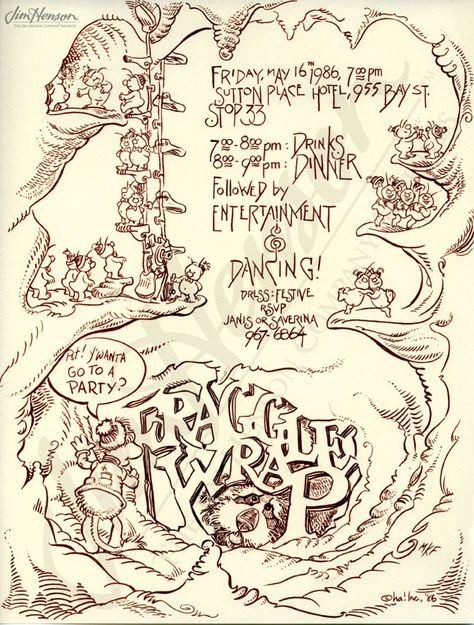 Jim Henson
THE JIM HENSON COMPANY ARCHIVES
FRIDAY, MAY 16TH 1986, 7:00 PM
SUTTON PLACE HOTEL, 955 BAY ST.
STOP 33
7:00-8:00 PM: DRINKS
8:00-9:00 PM: DINNER
Followed by
ENTERTAINMENT
&
DANCING!
DRESS: FESTIVE
RSVP
JANIS OR SAVERINA
967-6864
Pst! Y'WANTA
GO TO A
PARTY?
FRAGGLE
WRAP
MKF
© ha! inc. '86